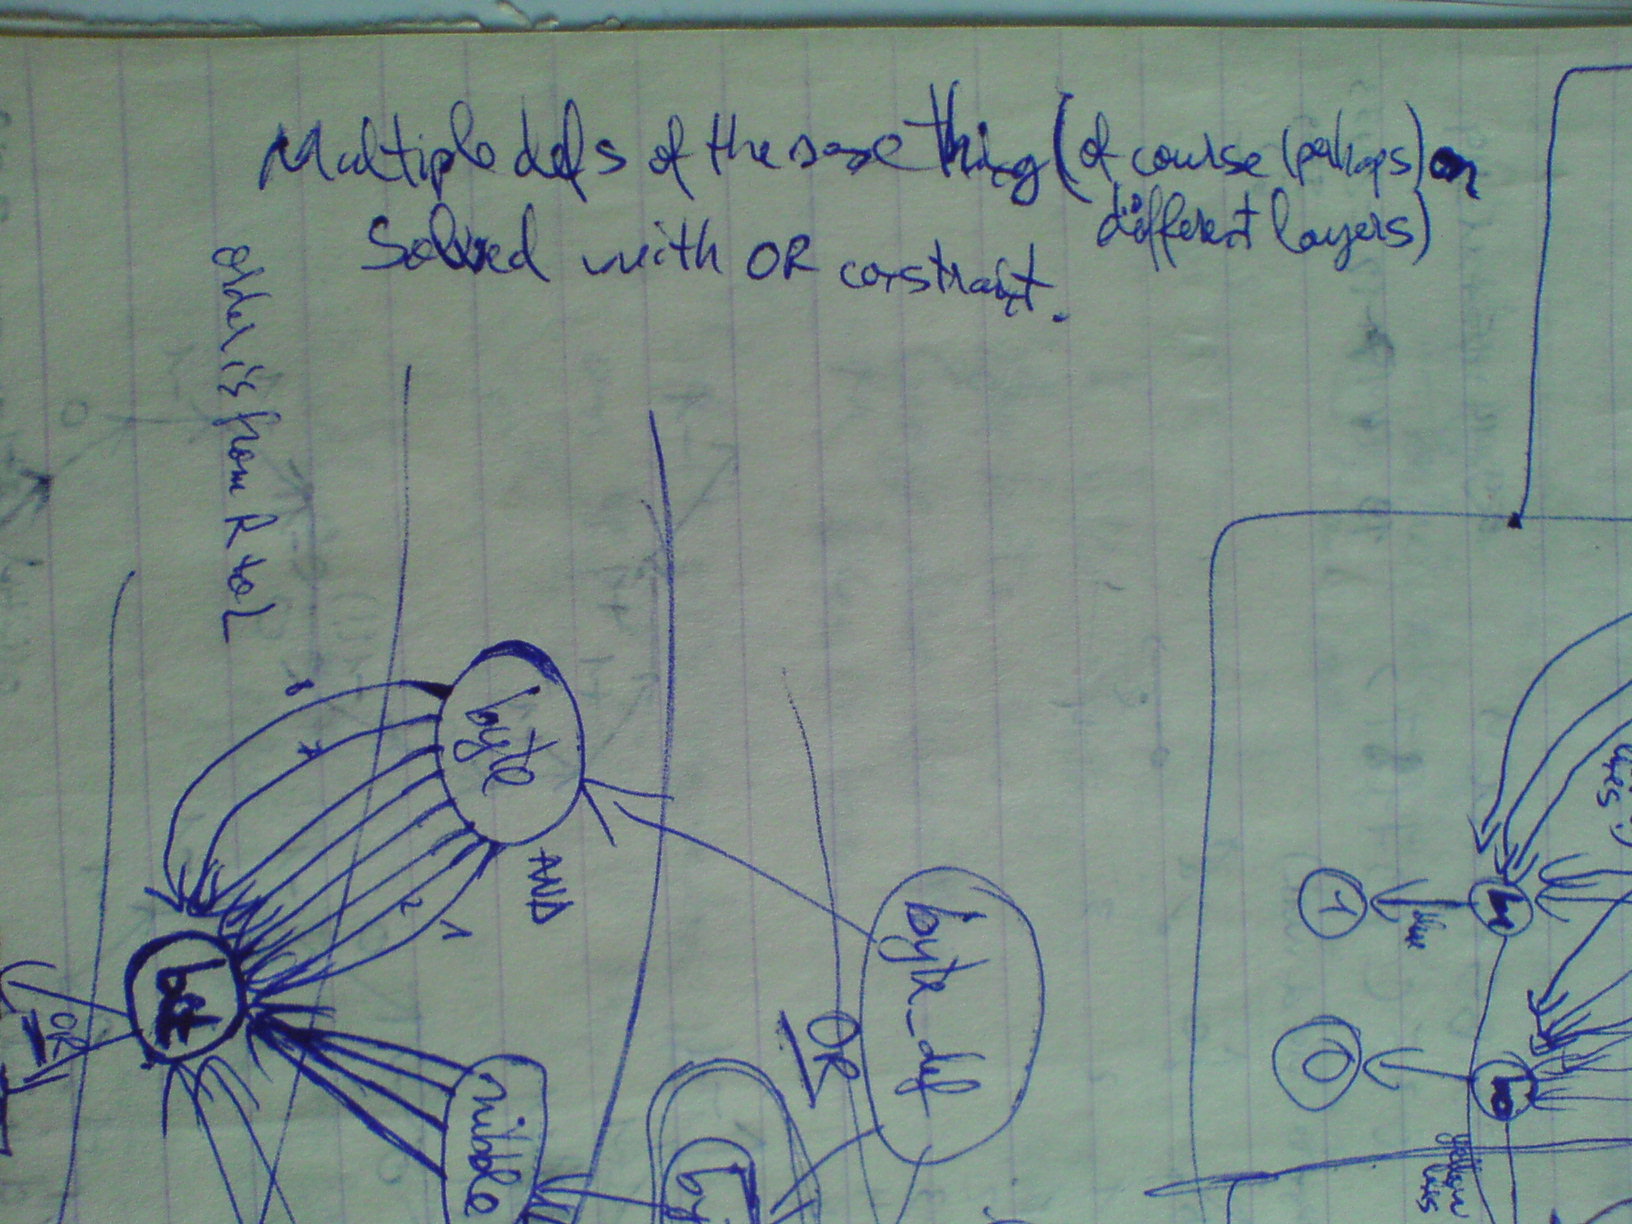 Multiple defs of the same thing (of course (perhaps) on
different layers)
Solved with OR constraint.
order is from R to L
8
7
byte
AND
2
1
bit
OR
nibble
byte_def
OR
by
1
blue
b1
0
b0
yellow